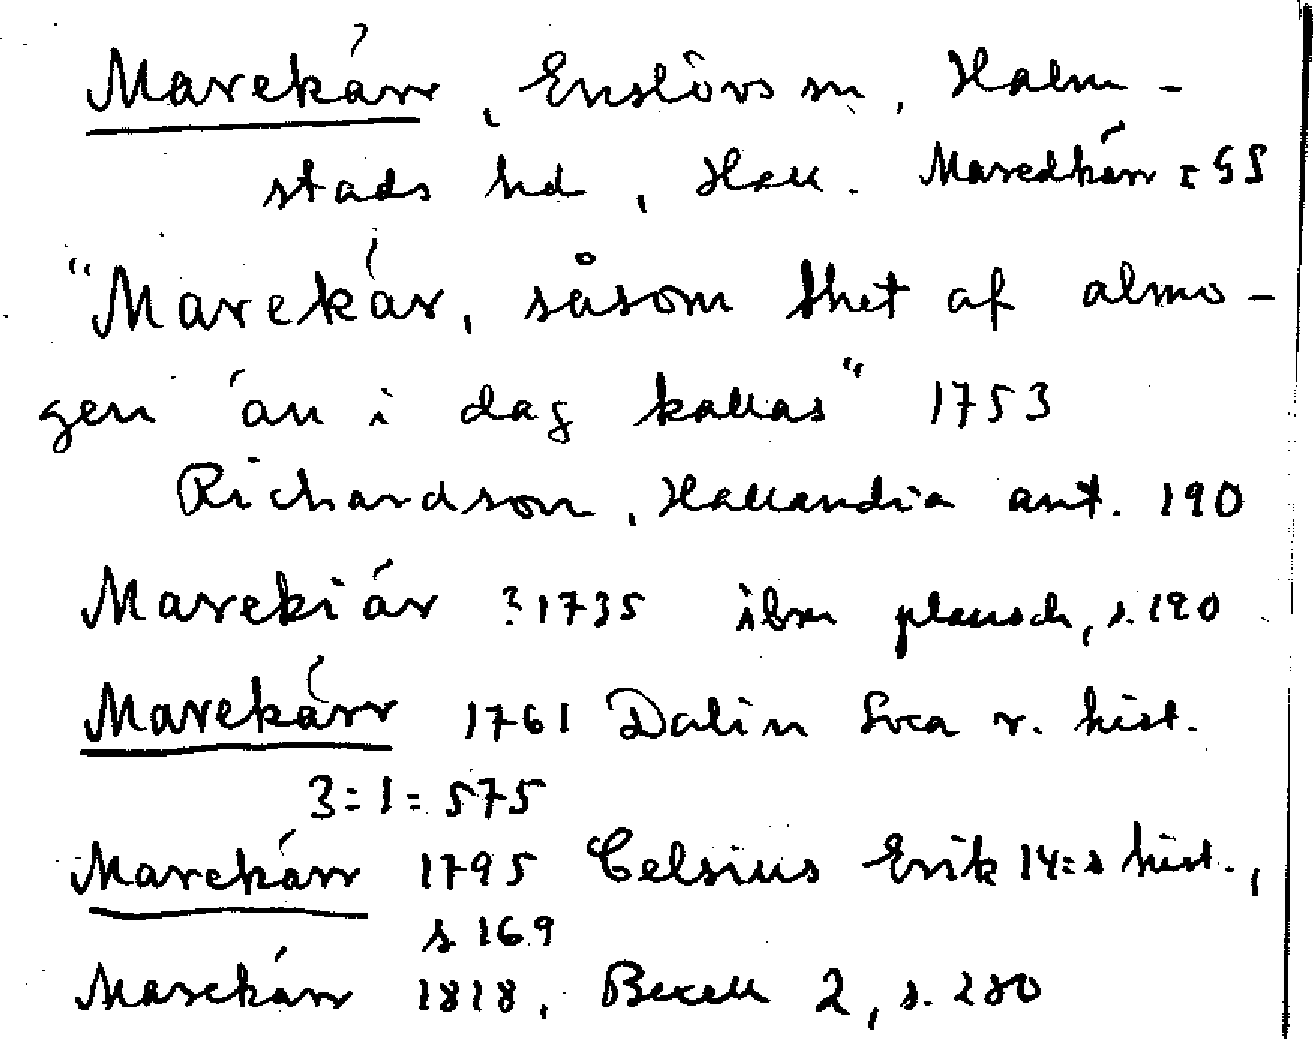 Marekärr, Enslövs sn, Halm-
stads hd, Hall. Maredkärr = GS
"Marekär, såsom thet af almo-
gen än i dag kallas" 1753
Richardson, Hallandia ant. 190
Marekiär ? 1735 ibm plansch, s. 190
Marekärr 1761 Dalin Svea r. hist.
3:1: 575
Marekärr 1795 Celsius Erik 14:s hist.,
s 169
Marekärr 1818, Bexell 2, s. 280